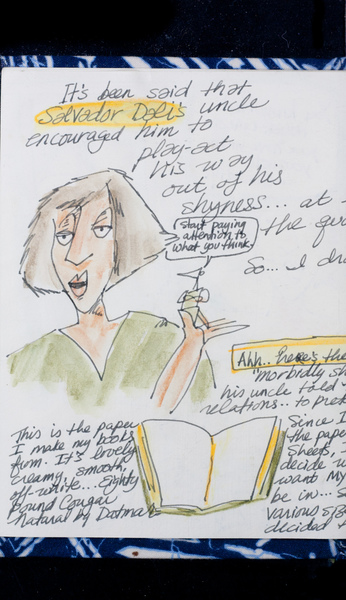 It's been said that
Salvador Dali's uncle
encouraged him to
play-act
his way
out of his
shyness... at
the
So... I
Start paying
attention to
what you think.
Ahh.. here's the
"morbidly
his uncle told
relations.. to
This is the paper
I make my books
from. It's lovely
creamy, smooth,
off-white... Eighty
pound Cougar
Natural by
Since I
the paper
sheets,
decide
want my
be in...
various
decided